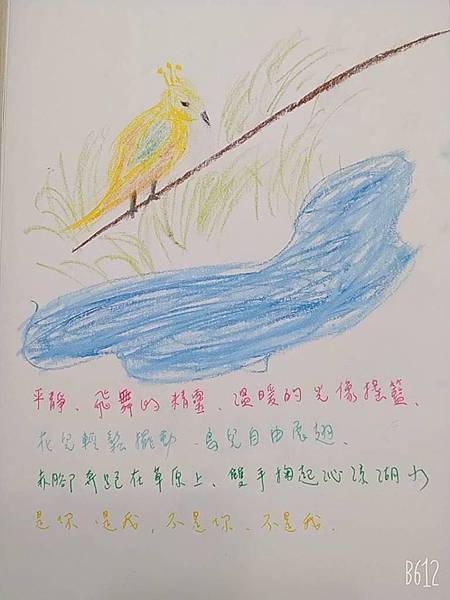 平靜、飛舞的精靈、溫暖的光像搖籃、
花兒輕鬆擺動、鳥兒自由展翅、
赤腳奔跑在草原上、雙手掬起沁涼湖水
是你、是我、不是你、不是我、
B612